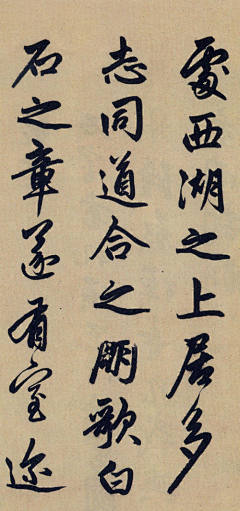 處西湖之上居多
志同道合之朋歌白
石之章遂有室邇